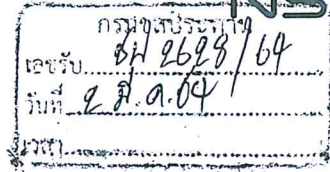 กรมชลประทาน
เลขรับ ชป 2628/64
วันที่ 2 มี.ค.64
เวลา